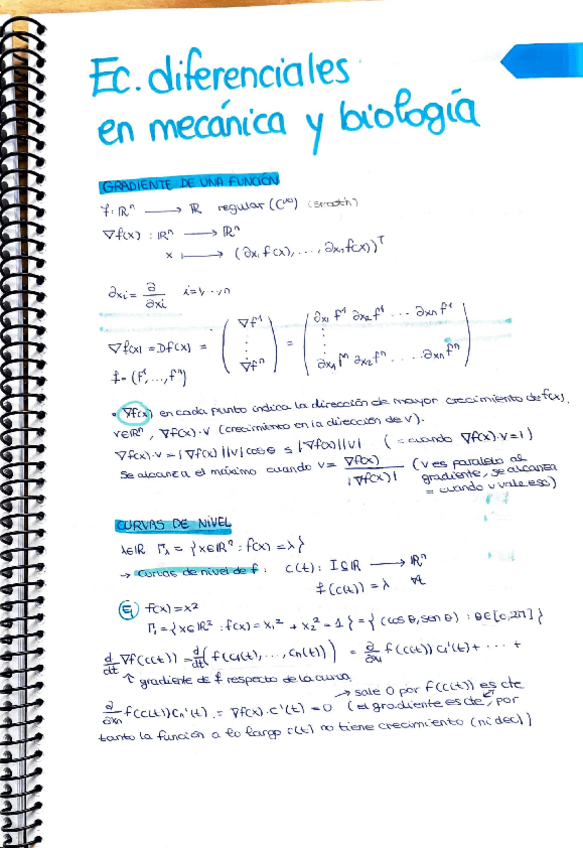 Ec. diferenciales
en mecánica y biología
GRADIENTE DE UNA FUNCIÓN
f: ℝⁿ → ℝ regular (C^∞) (smooth)
∇f(x) : ℝⁿ → ℝⁿ
x ↦ (∂x₁ f(x), ..., ∂xₙ f(x))ᵀ
∂xᵢ = ∂/∂xᵢ i=1, ..., n
∇f(x) = Df(x) = (∇f¹ ⋮ ∇fⁿ) = (∂x₁ f¹ ∂x₂ f¹ ... ∂xₙ f¹ ⋮ ∂x₁ fⁿ ∂x₂ fⁿ ... ∂xₙ fⁿ)
f = (f¹, ..., fⁿ)
• ∇f(x) en cada punto indica la dirección de mayor crecimiento de f(x).
v∈ℝⁿ, ∇f(x)·v (crecimiento en la dirección de v).
∇f(x)·v = |∇f(x)||v|cos θ ≤ |∇f(x)||v| (= cuando ∇f(x)·v=1)
Se alcanza el máximo cuando v = ∇f(x)/|∇f(x)| (v es paralelo al
gradiente, se alcanza
= cuando v vale eso)
CURVAS DE NIVEL
λ∈ℝ Γλ = {x∈ℝⁿ : f(x) = λ}
→ Curvas de nivel de f: c(t): I⊆ℝ → ℝⁿ
f(c(t)) = λ ∀t
Ej f(x) = x²
Γ₁ = {x∈ℝ² : f(x) = x₁² + x₂² = 1} = {(cos θ, sen θ) : θ∈[0,2π]}
d/dt ∇f(c(t)) = d/dt (f(c₁(t), ..., cₙ(t))) = ∂/∂x₁ f(c(t)) c₁'(t) + ... +
↑ gradiente de f respecto de la curva.
→ sale 0 por f(c(t)) es cte
∂/∂xₙ f(c(t)) cₙ'(t) = ∇f(x)·c'(t) = 0 (el gradiente es cte, por
tanto la función a lo largo c(t) no tiene crecimiento (ni dec))